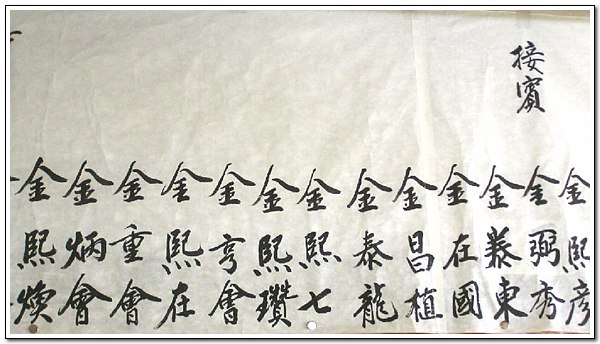 接賓
金熙彦
金弼秀
金義東
金在國
金昌植
金泰龍
金熙七
金熙瓚
金亨會
金熙在
金重會
金炳會
金熙煥